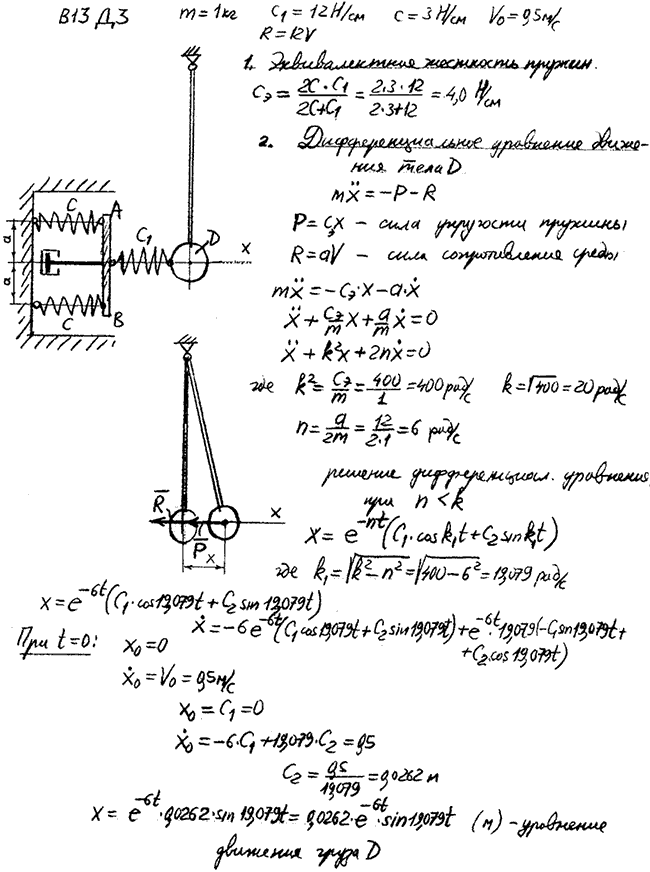 В13 Д3 m=1кг C₁=12Н/см C=3Н/см V₀=0,5м/с
R=RV
1. Эквивалентная жесткость пружин.
Cэ=2C·C₁/(2C+C₁)=2·3·12/(2·3+12)=4,0 Н/см
2. Дифференциальное уравнение движе-
ния тела D
mẍ=-P-R
P=CэX - сила упругости пружины
R=aV - сила сопротивления среды
mẍ=-Cэ·X-a·ẋ
ẍ+Cэ/m X+a/m ẋ=0
ẍ+k²x+2nẋ=0
где k²=Cэ/m=400/1=400рад/с k=√400=20рад/с
n=a/2m=12/2·1=6 рад/с
решение дифференциал. уравнения,
при n<k
X=e^-nt(C₁·cosk₁t+C₂sink₁t)
где k₁=√k²-n²=√400-6²=19,079рад/с
x=e^-6t(C₁·cos19,079t+C₂sin19,079t)
ẋ=-6e^-6t(C₁cos19,079t+C₂sin19,079t)+e^-6t·19,079(-C₁sin19,079t+
+C₂cos19,079t)
При t=0: x₀=0
ẋ₀=V₀=0,5м/с
x₀=C₁=0
ẋ₀=-6·C₁+19,079·C₂=0,5
C₂=0,5/19,079=0,0262 м
x=e^-6t·0,0262·sin19,079t=0,0262·e^-6t·sin19,079t (м) -уравнение
движения груза D
C
A
C₁
D
X
a
a
C
B
R
P
X
X